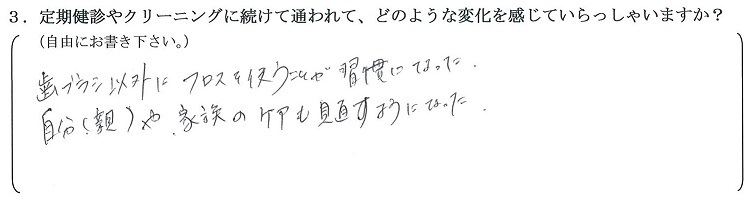 3．定期健診やクリーニングに続けて通われて、どのような変化を感じていらっしゃいますか？
（自由にお書き下さい。）
歯ブラシ以外に フロスを使うことが 習慣になった.
自分(親)や 家族の ケアも見直すようになった.